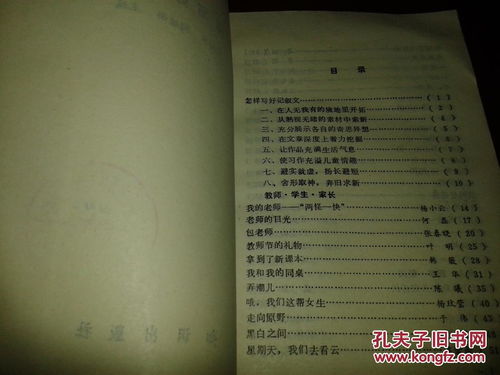 目 录
怎样写好记叙文……（1）
一、在人无我有的境地里开拓……（2）
二、从熟视无睹的素材中索新……（4）
三、充分展示各自的奇思异想……（5）
四、在文章深度上着力挖掘……（6）
五、让作品充满生活气息……（7）
六、使习作充溢儿童情趣……（8）
七、避实就虚，扬长避短……（9）
八、舍形取神，弃旧求新……（10）
教师·学生·家长
我的老师——“两怪一快”……杨小云（14）
老师的目光……何磊（17）
包老师……张春晓（20）
教师节的礼物……叶明（25）
拿到了新课本……韩薇（28）
我和我的同桌……王华（31）
弄潮儿……陈曦（35）
哦，我们这帮女生……（40）
走向原野……于伟（43）
黑白之间
星期天，我们去看云……51
知识出版社
孔夫子旧书网
www.kongfz.com